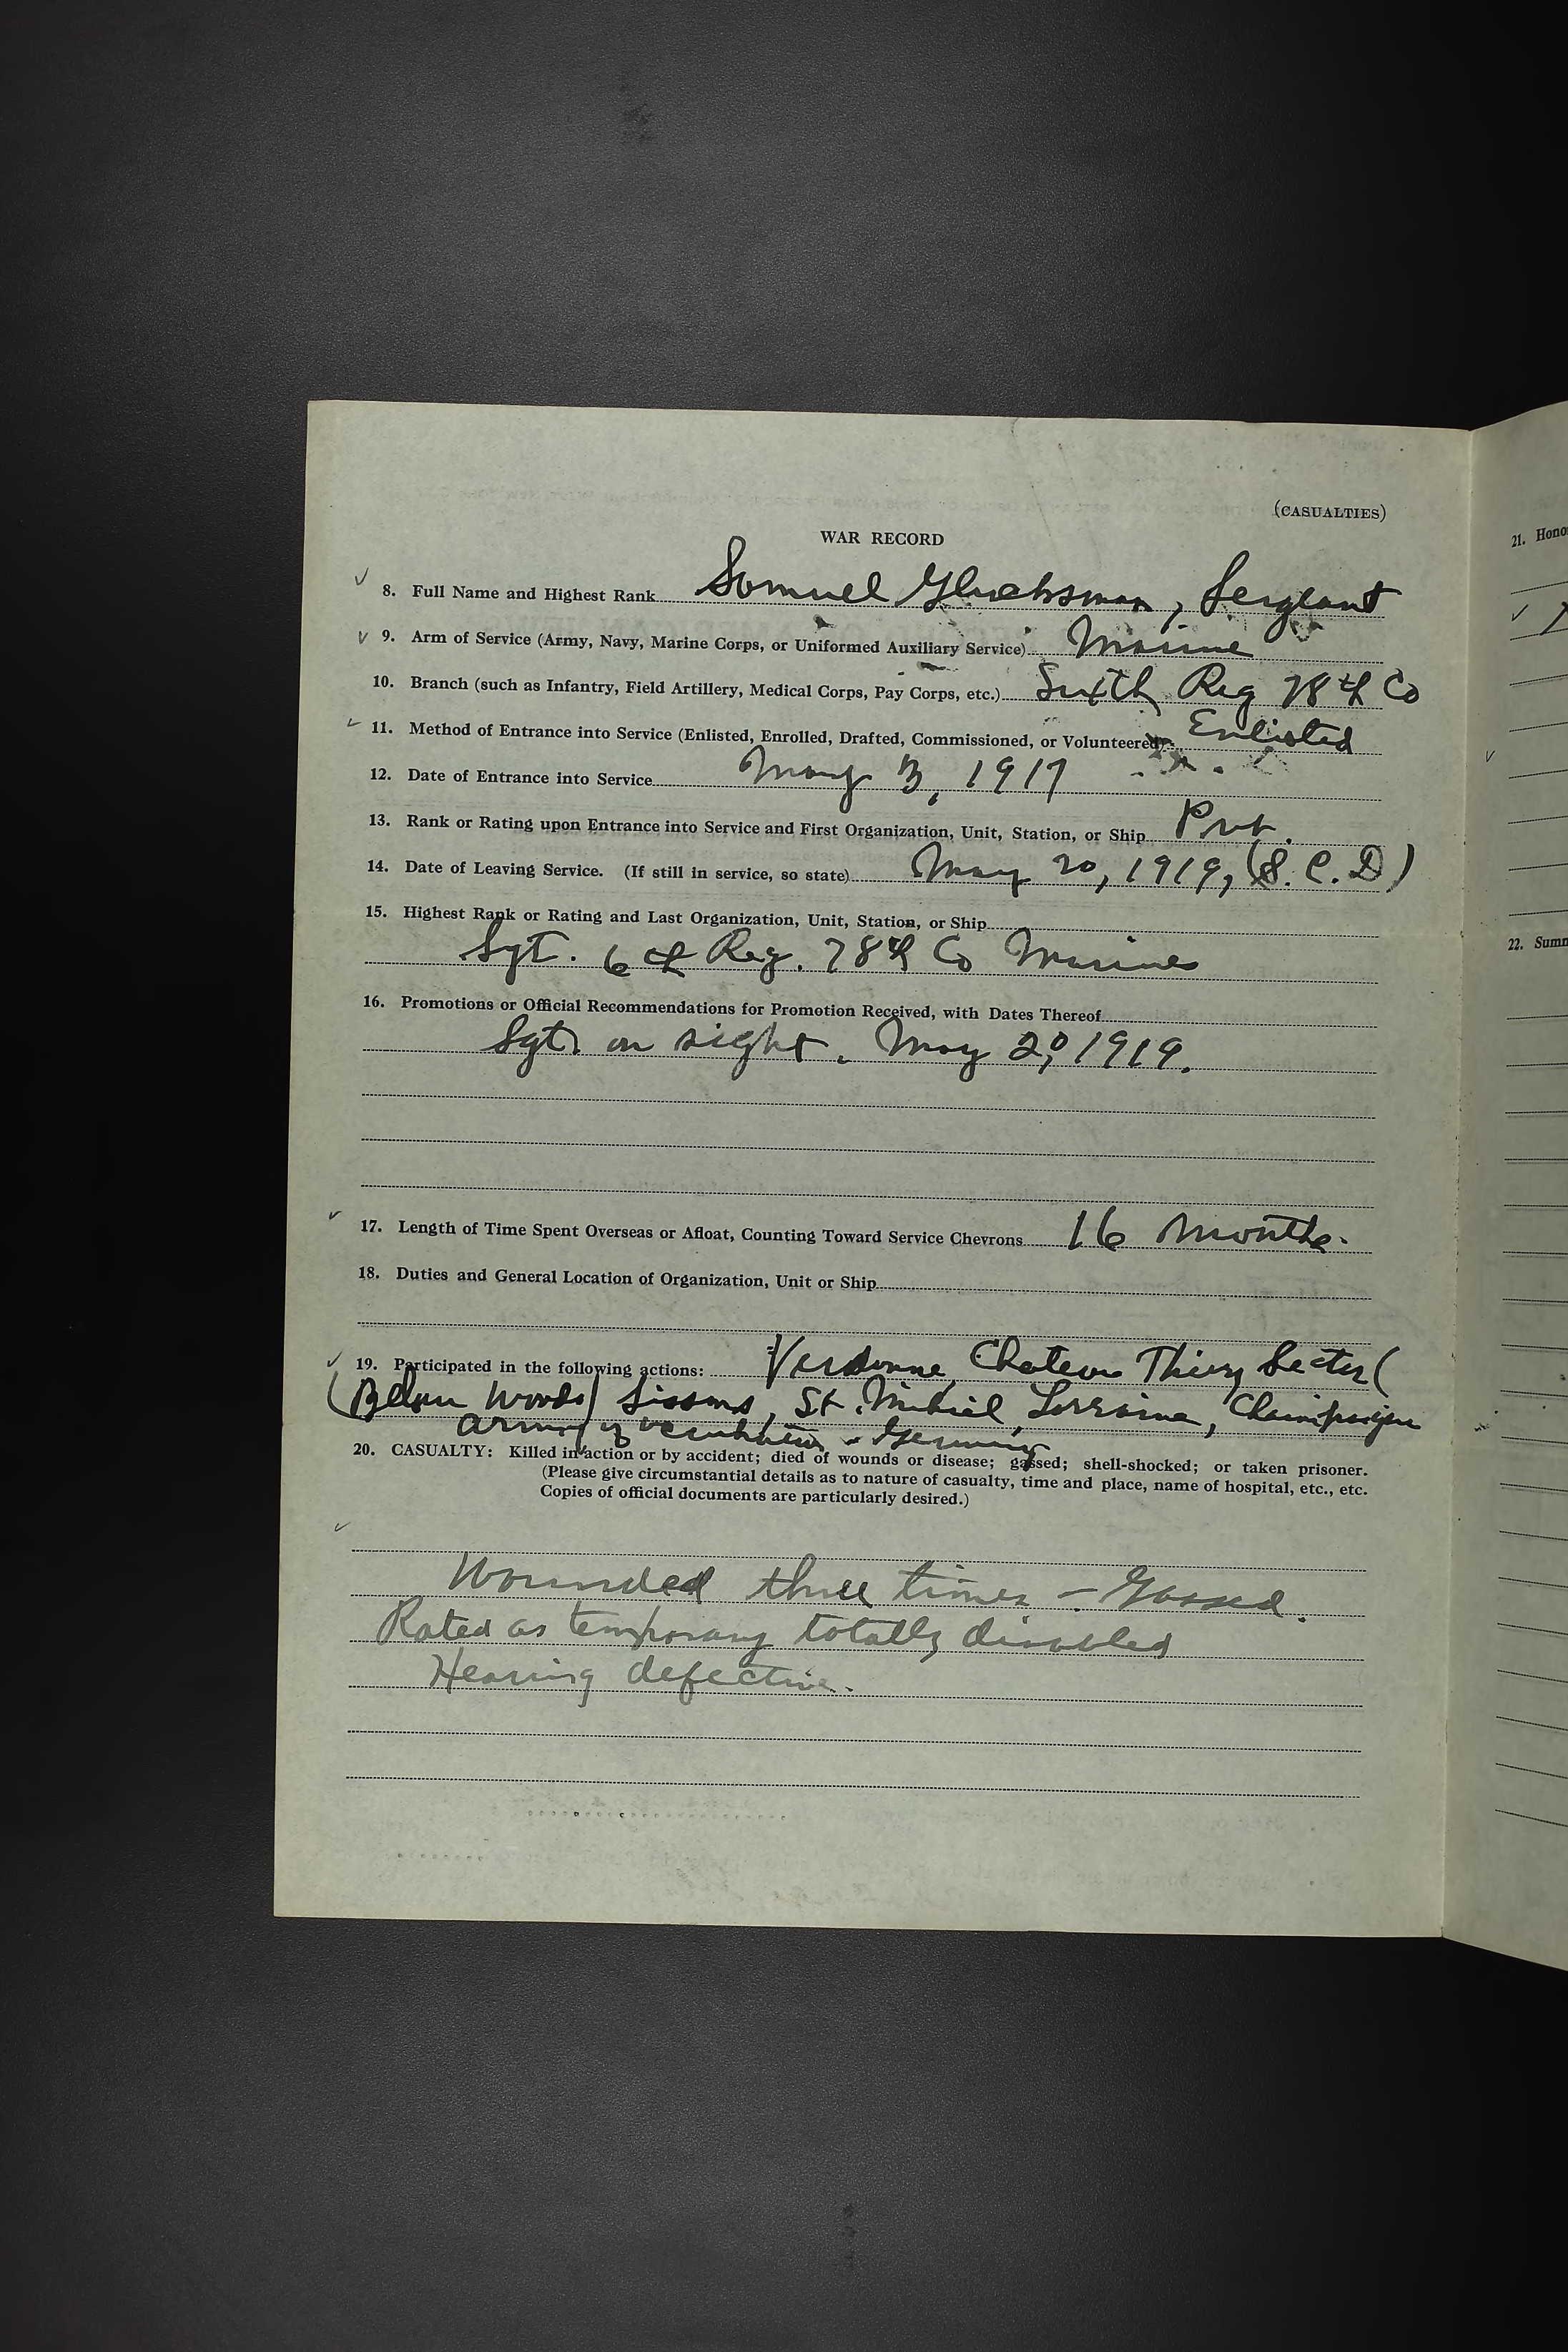 (CASUALTIES)
WAR RECORD
8. Full Name and Highest Rank Samuel Glucksman, Sergeant
9. Arm of Service (Army, Navy, Marine Corps, or Uniformed Auxiliary Service) Marine
10. Branch (such as Infantry, Field Artillery, Medical Corps, Pay Corps, etc.) Sixth Reg 78th Co
11. Method of Entrance into Service (Enlisted, Enrolled, Drafted, Commissioned, or Volunteered) Enlisted
12. Date of Entrance into Service May 3, 1917
13. Rank or Rating upon Entrance into Service and First Organization, Unit, Station, or Ship Pvt.
14. Date of Leaving Service. (If still in service, so state) May 20, 1919, (S. C. D)
15. Highest Rank or Rating and Last Organization, Unit, Station, or Ship
Sgt. 6th Reg. 78th Co Marines
16. Promotions or Official Recommendations for Promotion Received, with Dates Thereof
Sgt. on sight. May 20, 1919.
17. Length of Time Spent Overseas or Afloat, Counting Toward Service Chevrons 16 months.
18. Duties and General Location of Organization, Unit or Ship
19. Participated in the following actions: Verdunne, Chateau Thiery Sector (
(Belau Woods) Sissons, St. Mihiel, Lorraine, Champaigne
Army of - Germany
20. CASUALTY: Killed in action or by accident; died of wounds or disease; gassed; shell-shocked; or taken prisoner.
(Please give circumstantial details as to nature of casualty, time and place, name of hospital, etc., etc.
Copies of official documents are particularly desired.)
Wounded three times - Gassed.
Rated as temporary totally disabled
Hearing defective.
21. Hono
22. Summ